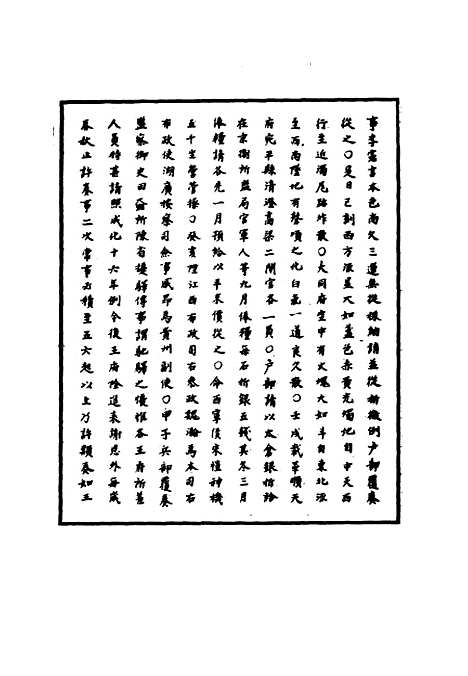 事李憲言本色尚欠三邊無從採納請並從折徵例戶部覆奏
從之○是日巳刻西方流星大如盞色赤黃光燭地自中天西
行至近濁尾跡炸散○大同府空中有火塊大如斗自東北流
至西南墜地有聲噴之化白氣一道良久散○壬戌裁革順天
府宛平縣清澄高梁二閘官各一員○戶部請以太倉銀折給
在京衛所監局官軍人等九月俸糧每石折銀五錢其冬三月
俸糧請各先一月預給以平米價從之○命西寧侯宋愷神機
五千坐營管操○癸亥陞江西布政司右參政魏瀚為本司右
布政使湖廣按察司僉事戚昂為貴州副使○甲子兵部覆奏
監察御史田 所陳省擾驛傳事謂馳驛之優惟各王府所差
人員特甚請照成化十六年例令後王府除進表謝恩外每歲
春秋止許奏事二次常事必積至五六起以上乃許類奏如王